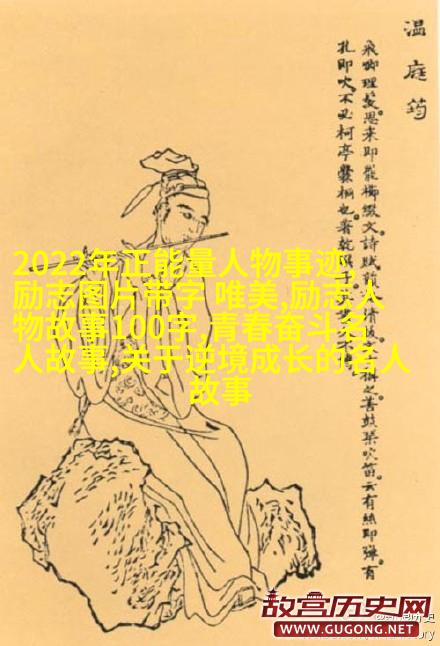 温庭筠
飛卿理髮思来即罷櫛綴文詩賦
孔即吹不必柯亭爨桐也著乾
之善鼓琴吹笛云有絲即彈有
2022年正能量人物事迹,
励志图片带字 唯美,励志人
物故事100字,青春奋斗名
人故事,关于逆境成长的名人
故事
故宫历史网
WWW.GUGONG.NET